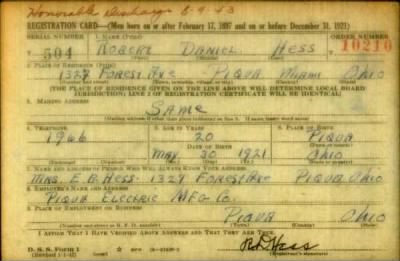 Honorable Discharge 8-9-43
REGISTRATION CARD—(Men born on or after February 17, 1897 and on or before December 31, 1921)
SERIAL NUMBER 1. NAME (Print) ORDER NUMBER
V 504 ROBERT DANIEL HESS 10210
(First) (Middle) (Last)
2. PLACE OF RESIDENCE (Print)
1327 FOREST AVE PIQUA MIAMI OHIO
(THE PLACE OF RESIDENCE GIVEN ON THE LINE ABOVE WILL DETERMINE LOCAL BOARD
JURISDICTION; LINE 2 OF REGISTRATION CERTIFICATE WILL BE IDENTICAL)
3. MAILING ADDRESS
SAME
(Mailing address if other than place indicated on line 2. If same insert word same)
4. TELEPHONE 5. AGE IN YEARS 6. PLACE OF BIRTH
1966 20 PIQUA
DATE OF BIRTH
MAY 30 1921 OHIO
7. NAME AND ADDRESS OF PERSON WHO WILL ALWAYS KNOW YOUR ADDRESS
MRS. E. B. HESS 1327 FOREST AVE PIQUA OHIO
8. EMPLOYER'S NAME AND ADDRESS
PIQUA ELECTRIC MFG CO.
9. PLACE OF EMPLOYMENT OR BUSINESS
PIQUA OHIO
I AFFIRM THAT I HAVE VERIFIED ABOVE ANSWERS AND THAT THEY ARE TRUE.
D. S. S. Form 1
(Revised 1-1-42) (Registrant's signature)